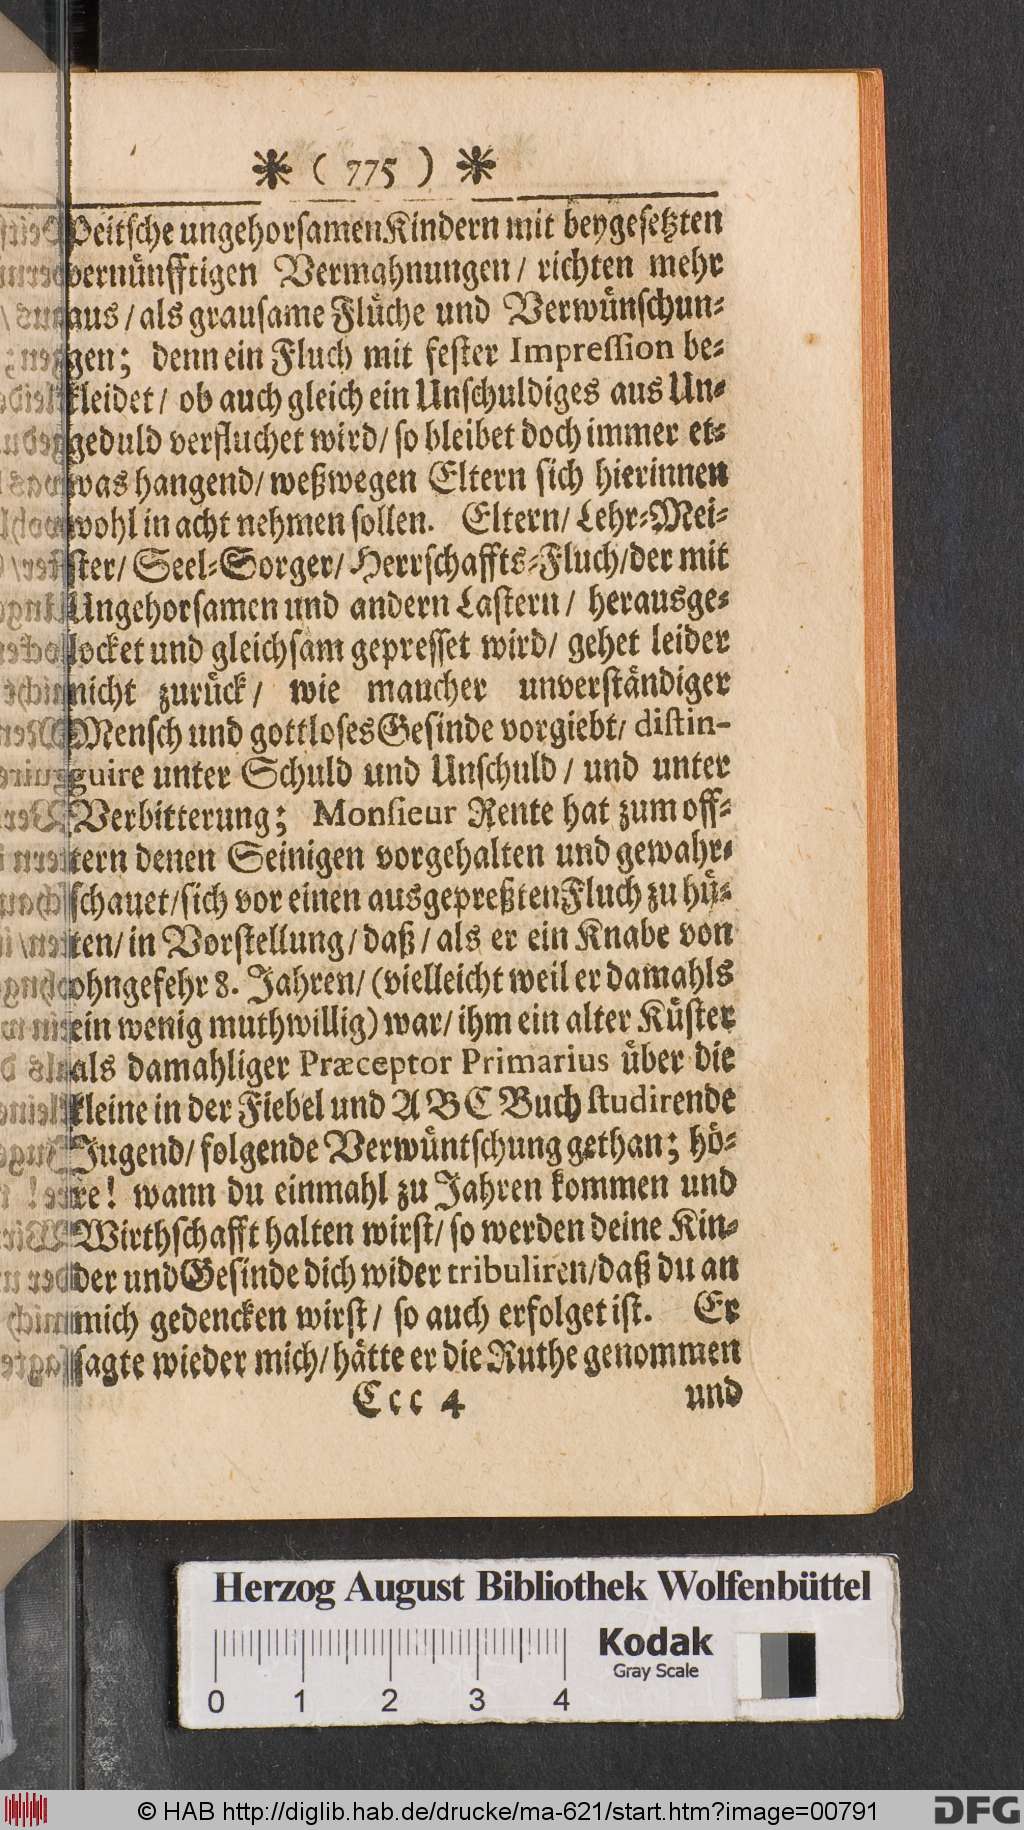 * ( 775 ) *
Peitsche ungehorsamen Kindern mit beygesetzten
vernünfftigen Vermahnungen / richten mehr
aus / als grausame Flüche und Verwünschun-
gen; denn ein Fluch mit fester Impression be-
kleidet / ob auch gleich ein Unschuldiges aus Un-
geduld verfluchet wird / so bleibet doch immer et-
was hangend / weßwegen Eltern sich hierinnen
wohl in acht nehmen sollen. Eltern / Lehr-Mei-
ster / Seel-Sorger / Herrschaffts-Fluch / der mit
Ungehorsamen und andern Lastern / herausge-
locket und gleichsam gepresset wird / gehet leider
nicht zurück / wie maucher unverständiger
Mensch und gottloses Gesinde vorgiebt / distin-
guire unter Schuld und Unschuld / und unter
Verbitterung; Monsieur Rente hat zum öff-
tern denen Seinigen vorgehalten und gewahr-
schauet / sich vor einen ausgepreßten Fluch zu hü-
ten / in Vorstellung / daß / als er ein Knabe von
ohngefehr 8. Jahren / (vielleicht weil er damahls
ein wenig muthwillig) war / ihm ein alter Küster
als damahliger Præceptor Primarius über die
kleine in der Fiebel und A B C Buch studirende
Jugend / folgende Verwüntschung gethan; hö-
re! wann du einmahl zu Jahren kommen und
Wirthschafft halten wirst / so werden deine Kin-
der und Gesinde dich wider tribuliren / daß du an
mich gedencken wirst / so auch erfolget ist. Er
sagte wieder mich / hätte er die Ruthe genommen
Ccc 4 und
Herzog August Bibliothek Wolfenbüttel
Kodak
Gray Scale
0 1 2 3 4
© HAB http://diglib.hab.de/drucke/ma-621/start.htm?image=00791
DFG